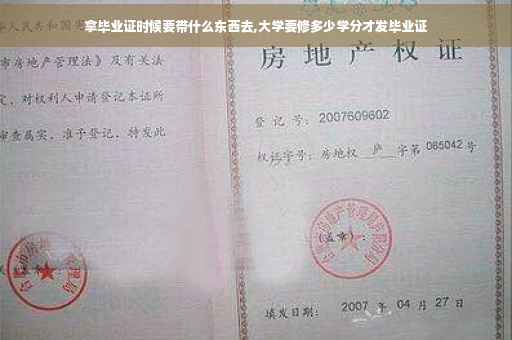 拿毕业证时候要带什么东西去,大学要修多少学分才发毕业证
人民共和国宪
市房地产管理法》及有关法
定，对权利人申请登记本证所
审查属实，准予登记，特发此
房地产权证
登记号：2007609602
权证字号：房地权 庐 字第 085042 号
（盖章）：
填发日期： 2007 年 04 月 27 日